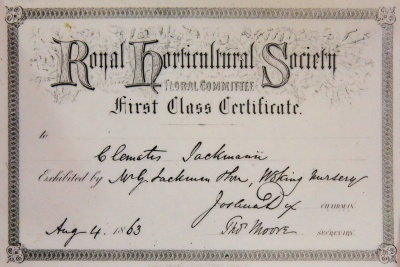 Royal Horticultural Society
FLORAL COMMITTEE
First Class Certificate.
to
Clematis Jackmanii
Exhibited by Mr G. Jackman & Son, Woking Nursery
Joshua Dix CHAIRMAN
Aug 4. 1863 Thos Moore SECRETARY